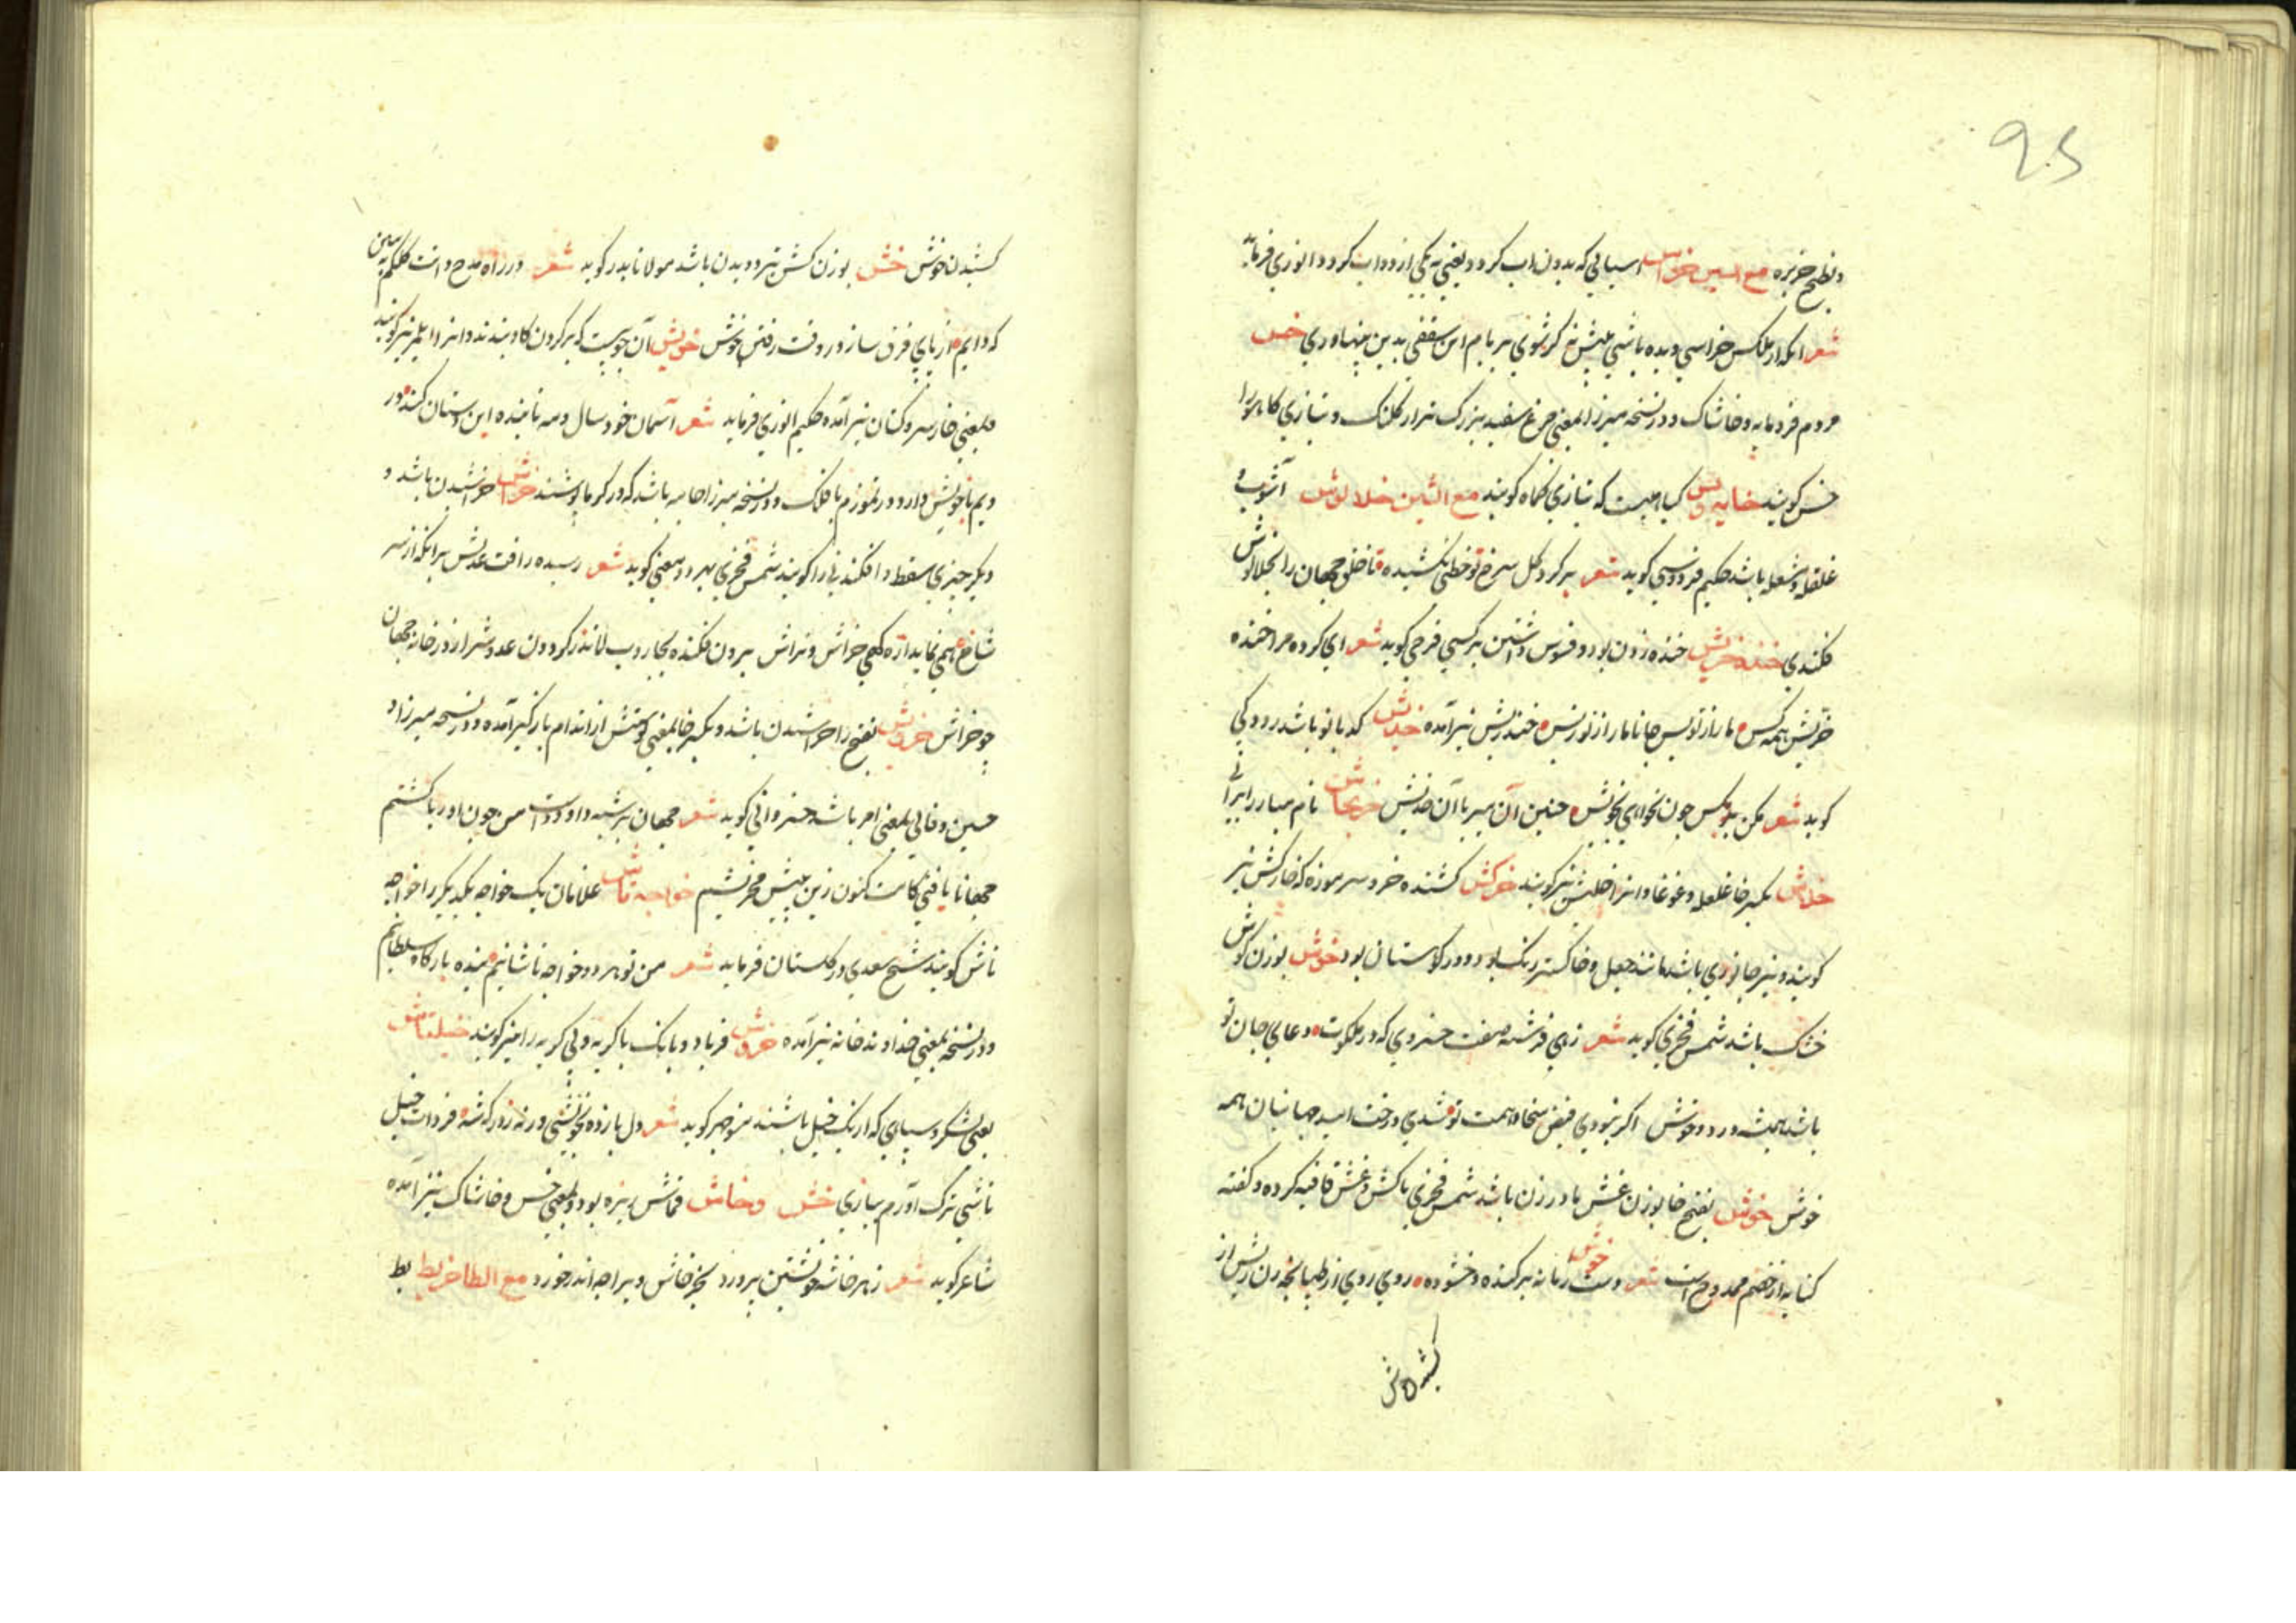 95
و بطیخ خربزه مع السین خراس اسیایی که بدون اب کردد یعنی به یکی از دواب کردد انوری فرماید
شعر ایکه از ملکس خراسی دیده باشی پیش نه کر شوی بر بام این سقفی بدین پهناوری خس
مردم فرومایه و خاشاک و در نسخه میرزا بمعنی مرغ سفید بزرک تر از کلنک و بتازی کاهو را
خس کویند خایه دیس کیاهیست که بتازی کماه کویند مع الشین خلالوش آشوب و
غلغله و مشعله باشد حکیم فردوسی کوید شعر بر کرد کل سرخ تو خطی بکشیده تا خلق جهان را بخلالوش
فکندی خنده خریش خنده زدن بود و فسوس داشتن بر کسی فرخی کوید شعر ای کرده مرا خنده
خریش همه کس ما را ز تو بس جانا ما را ز تو بس خندریش نیز آمده خدیش کدبانو باشد رودکی
کوید شعر مکن بد بکس چون نخواهی بخویش چنین آن میر با آن خدیش خرنجاش نام مبارز ایرانی
خلاش بکسر خا غلغله و غوغا و انرا خلش نیز کویند خرکش کشنده خر و سرموزه که خارکش نیز
کویند و نیز جانوری باشد مانند جعل و خاکستر رنک بود و در کوهستان بود خوش بوزن کوش
خشک باشد شمس فخری کوید شعر زهی فرشته صفت خسروی که در ملکوت دعای جان تو
باشد همیشه ورد و خوش اکر نبودی فیض سخا و همت تو شدی درخت امید جهانیان همه
خوش خوش بفتح خا بوزن غش مادر زن باشد شمس فخری با کش و غش قافیه کرده و کفته
کنایه از خصم ممدوح است شعر دست زمانه برکنده و خشوده روی روی از طپانچه زن ریش از خوش
کشیدن
کشیدن خوش خش بوزن کش تیز دویدن باشد مولانا بدر کوید شعر در راه مدح و انت کلکم به بین
که دایم از پای فرق سازد در وقت رفتن خوش خویش آن چوبیست که بر کردن کاو بندند و انرا ایلم نیز کویند
و بمعنی خار سر و کتان نیز آمده حکیم انوری فرماید شعر آسمان خود سال و مه با بنده این دستان کند در
دیم با خویش دارد در تموزم با فلک و در نسخه میرزا جامه باشد که در کرما پوشند خراش خراشیدن باشد و
دیکر چیزی سقط و افکندنی را کویند شمس فخری بهر دو معنی کوید شعر رسیده رافت عدلش برانکه از سر
شاخ همی نماید ازه کهی خراش و تراش برون فکنده بجاروب لا نذر کردون عدو شرار زور خانه جهان
چو خراش خروش بفتح را خراشیدن باشد و بکسر خا بمعنی کوشش از اندام باز کیر آمده و در نسخه میرزا و
حسین وفائی بمعنی امر باشد خسروانی کوید شعر جهان بر شبه داودست من چون اوریا کشتم
جهانا یافتی کامت کنون زین بیش مخرشم خواجه تاش غلامان یک خواجه یکدیکر را خواجه
تاش کویند شیخ سعدی در کلستان فرماید شعر من تو هر دو خواجه تاشانیم بنده بارکاه سلطانیم
و در نسخه بمعنی خداوند خانه نیز آمده خروش فریاد و بانک با کریه و بی کریه را نیز کویند خیلتاش
یعنی لشکر و سپاهی که از یک خیل باشند منوچهر کوید شعر دل بازده بخوشی ورنه ز درکه شه فردات خیل
تاشی ترک آورم بیازی خش و خاش قماش ریزه بود و بمعنی خس و خاشاک نیز آمده
شاعر کوید شعر ز بهر خاشه خویشتن پرورد بجز خاش ویرا چه اندر خورد مع الطا خربط بط